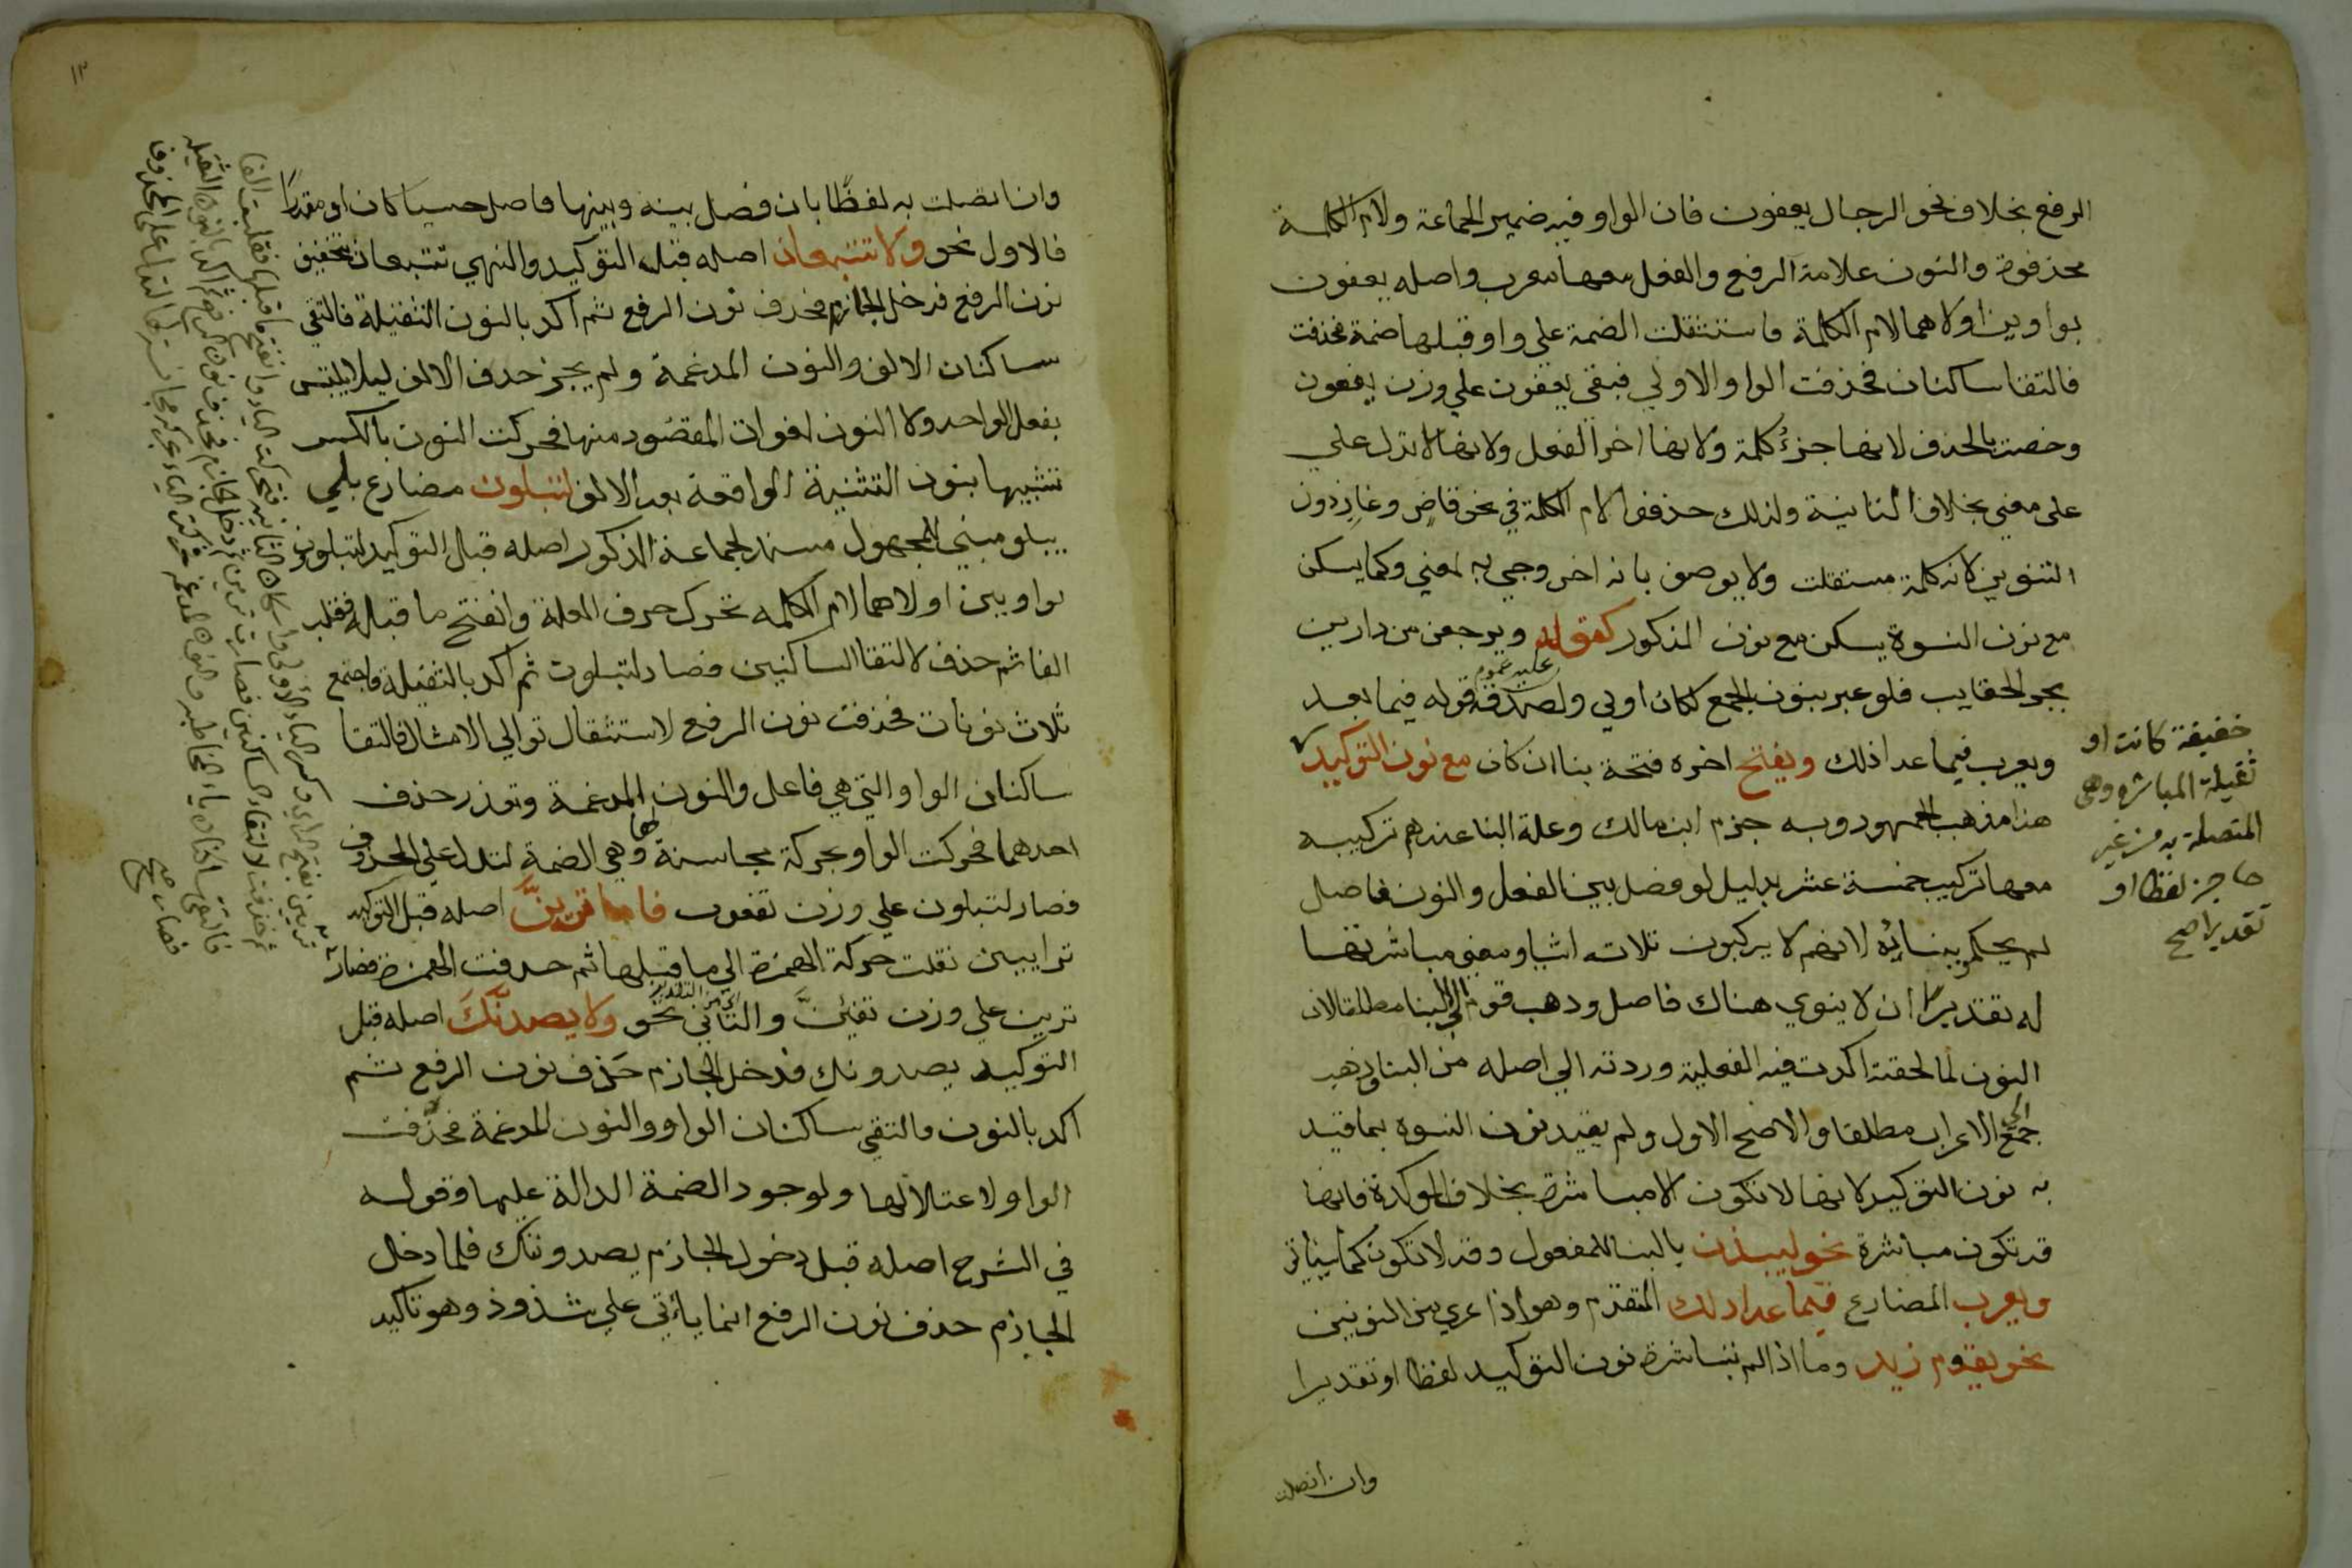 الرفع بخلاف نحو الرجال يعفون فان الواو فيه ضمير الجماعة ولام الكلمة
محذفوة والنون علامة الرفع والفعل معها معرب واصله يعفوون
بواوين اولاهما لام الكلمة فاستثقلت الضمة علي واو قبلها ضمة فحذفت
فالتقا ساكنان فحذفت الواو الاولي فبقي يعفون علي وزن يفعون
وخصت بالحذف لانها جزؤ كلمة ولانها اخر الفعل ولانها لا تدل علي
علي معني بخلاف الثانية ولذلك حذفوا لام الكلمة في نحو قاض وغاز دون
التنوين لانه كلمة مستقلت ولا يوصف بانه اخر وجي به لمعني وكما يسكن
مع نون النسوة يسكن مع نون المذكور كقوله ويرجعن من دارين
بجر الحقايب فلو عبر بنون الجمع لكان اولي ولصدق عليه عموم قوله فيما بعد
ويعرب فيما عدا ذلك ويفتح اخره فتحة بنا ان كان مع نون التوكيد
خفيفة كانت او
ثقيلة المباشرة وهي
المتصلة به من غير
حاجز لفظا او
تقديرا صح
هذا مذهب الجمهور وبه جزم ابن مالك وعلة البنا عندهم تركيبه
معها تركيب خمسة عشر بدليل لو فصل بين الفعل والنون فاصل
لم يحكمو ببنائه لانهم لا يركبون ثلاثه اشيا ومعني مباشرتها
له تقديرا ان لا ينوي هناك فاصل وذهب قوم الي البنا مطلقا لان
النون لما لحقته اكدت فيه الفعلية وردته الي اصله من البنا وذهب
جمع الي الاعراب مطلقا والاصح الاول ولم يقيد نون النسوه بما قيد
به نون التوكيد لانها لا تكون الا مباشرة بخلاف الموكدة فانها
قد تكون مباشرة نحو لينبذن بالبنا للمفعول وقد لا تكون كما سياتي
ويعرب المضارع فيما عدا ذلك المتقدم وهو اذا عري من النونين
نحو يقوم زيد وما اذا لم تباشره نون التوكيد لفظا او تقديرا
وان اتصلت
١٢
وان اتصلت به لفظا بان فصل بينه وبينها فاصل حسيا كان او مقدرا
فالاول نحو ولا تتبعان اصله قبل التوكيد والنهي تتبعان بتخفيف
نون الرفع فدخل الجازم فحذف نون الرفع ثم اكد بالنون الثقيلة فالتقي
ساكنان الالف والنون المدغمة ولم يجز حذف الالف ليلا يلتبس
بفعل الواحد ولا النون لفوات المقصود منها فحركت النون بالكسر
تشبيها بنون التثنية الواقعة بعد الالف لتبلون مضارع بلي
يبلو مبني للمجهول مسند لجماعة الذكور اصله قبل التوكيد لتبلوون
بواوين اولاهما لام الكلمه تحرك حرف العلة وانفتح ما قبله فقلب
الفا ثم حذف لالتقا الساكنين فصار لتبلون ثم اكد بالثقيلة فاجتمع
ثلاث نونات فحذفت نون الرفع لاستثقال توالي الامثال فالتقا
ساكنان الواو التي هي فاعل والنون المدغمة وتعذر حذف
احدهما فحركت الواو بحركة مجانسة لها وهي الضمة لتدل علي المحذوف
فصار لتبلون علي وزن تفعون فاما ترين اصله قبل التوكيد
ترايين نقلت حركة الهمزة الي ما قبلها ثم حذفت الهمزة فصار
ترين علي وزن تفين والثاني نحو ولا يصدنك اصله قبل
التوكيد يصدونك فدخل الجازم حذف نون الرفع ثم
اكد بالنون فالتقي ساكنان الواو والنون المدغمة فحذفت
الواو لاعتلالها ولوجود الضمة الدالة عليها وقوله
في الشرح اصله قبل دخول الجازم يصدوننك فلما دخل
الجازم حذف نون الرفع انما ياتي علي شذوذ وهو تاكيد